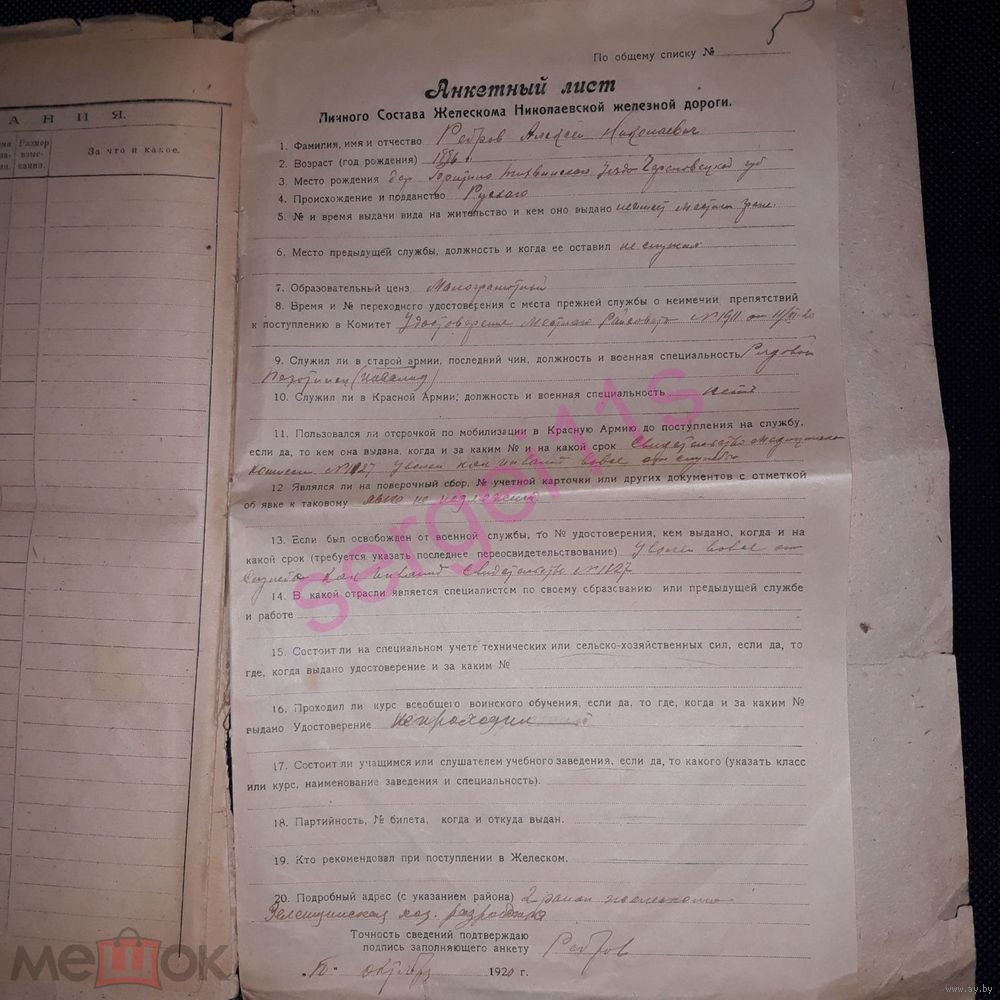 5
По общему списку №
Анкетный лист
Личного Состава Желескома Николаевской железной дороги.
АНИЯ.
Размер взыс-кания.
За что и какое.
1. Фамилия, имя и отчество Ребров Алексей Николаевич
2. Возраст (год рождения) 1886 г
3. Место рождения дер Тихвинской Уезда Череповецкой губ
4. Происхождение и подданство Рускаго
5. № и время выдачи вида на жительство и кем оно выдано
6. Место предыдущей службы, должность и когда ее оставил не служил
7. Образовательный ценз Малограмотный
8. Время и № переходнго удостоверения с места прежней службы о неимении препятствий
к поступлению в Комитет Удостоверение № 1911 от 11/VI-20
9. Служил ли в старой армии, последний чин, должность и военная специальность Рядовой
(инвалид)
10. Служил ли в Красной Армии; должность и военная специальность нетъ
11. Пользовался ли отсрочкой по мобилизации в Красную Армию до поступления на службу,
если да, то кем она выдана, когда и за каким № и на какой срок Свидетельство Медицинской
комиссии № 1827 уволен как инвалид вовсе от службы
12 Являлся ли на поверочный сбор, № учетной карточки или других документов с отметкой
об явке к таковому явке не подлежит
13. Если был освобожден от военной службы, то № удостоверения, кем выдано, когда и на
какой срок (требуется указать последнее переосвидетельствование) уволен вовсе от
службы как инвалид Свидетельство № 1827
14. В какой отрасли является специалистом по своему образованию или предыдущей службе
и работе
15. Состоит ли на специальном учете технических или сельско-хозяйственных сил, если да, то
где, когда выдано удостоверение и за каким №
16. Проходил ли курс всеобщего воинского обучения, если да, то где, когда и за каким №
выдано Удостоверение непроходил
17. Состоит ли учащимся или слушателем учебного заведения, если да, то какого (указать класс
или курс, наименование заведения и специальность).
18. Партийность, № билета, когда и откуда выдан.
19. Кто рекомендовал при поступлении в Желеском.
20. Подробный адрес (с указанием района) 2 район
хоз. разработка
Точность сведений подтверждаю
подпись заполняющего анкету Ребров
октября 1920 г.
sergej11s
мешок
www.ay.by